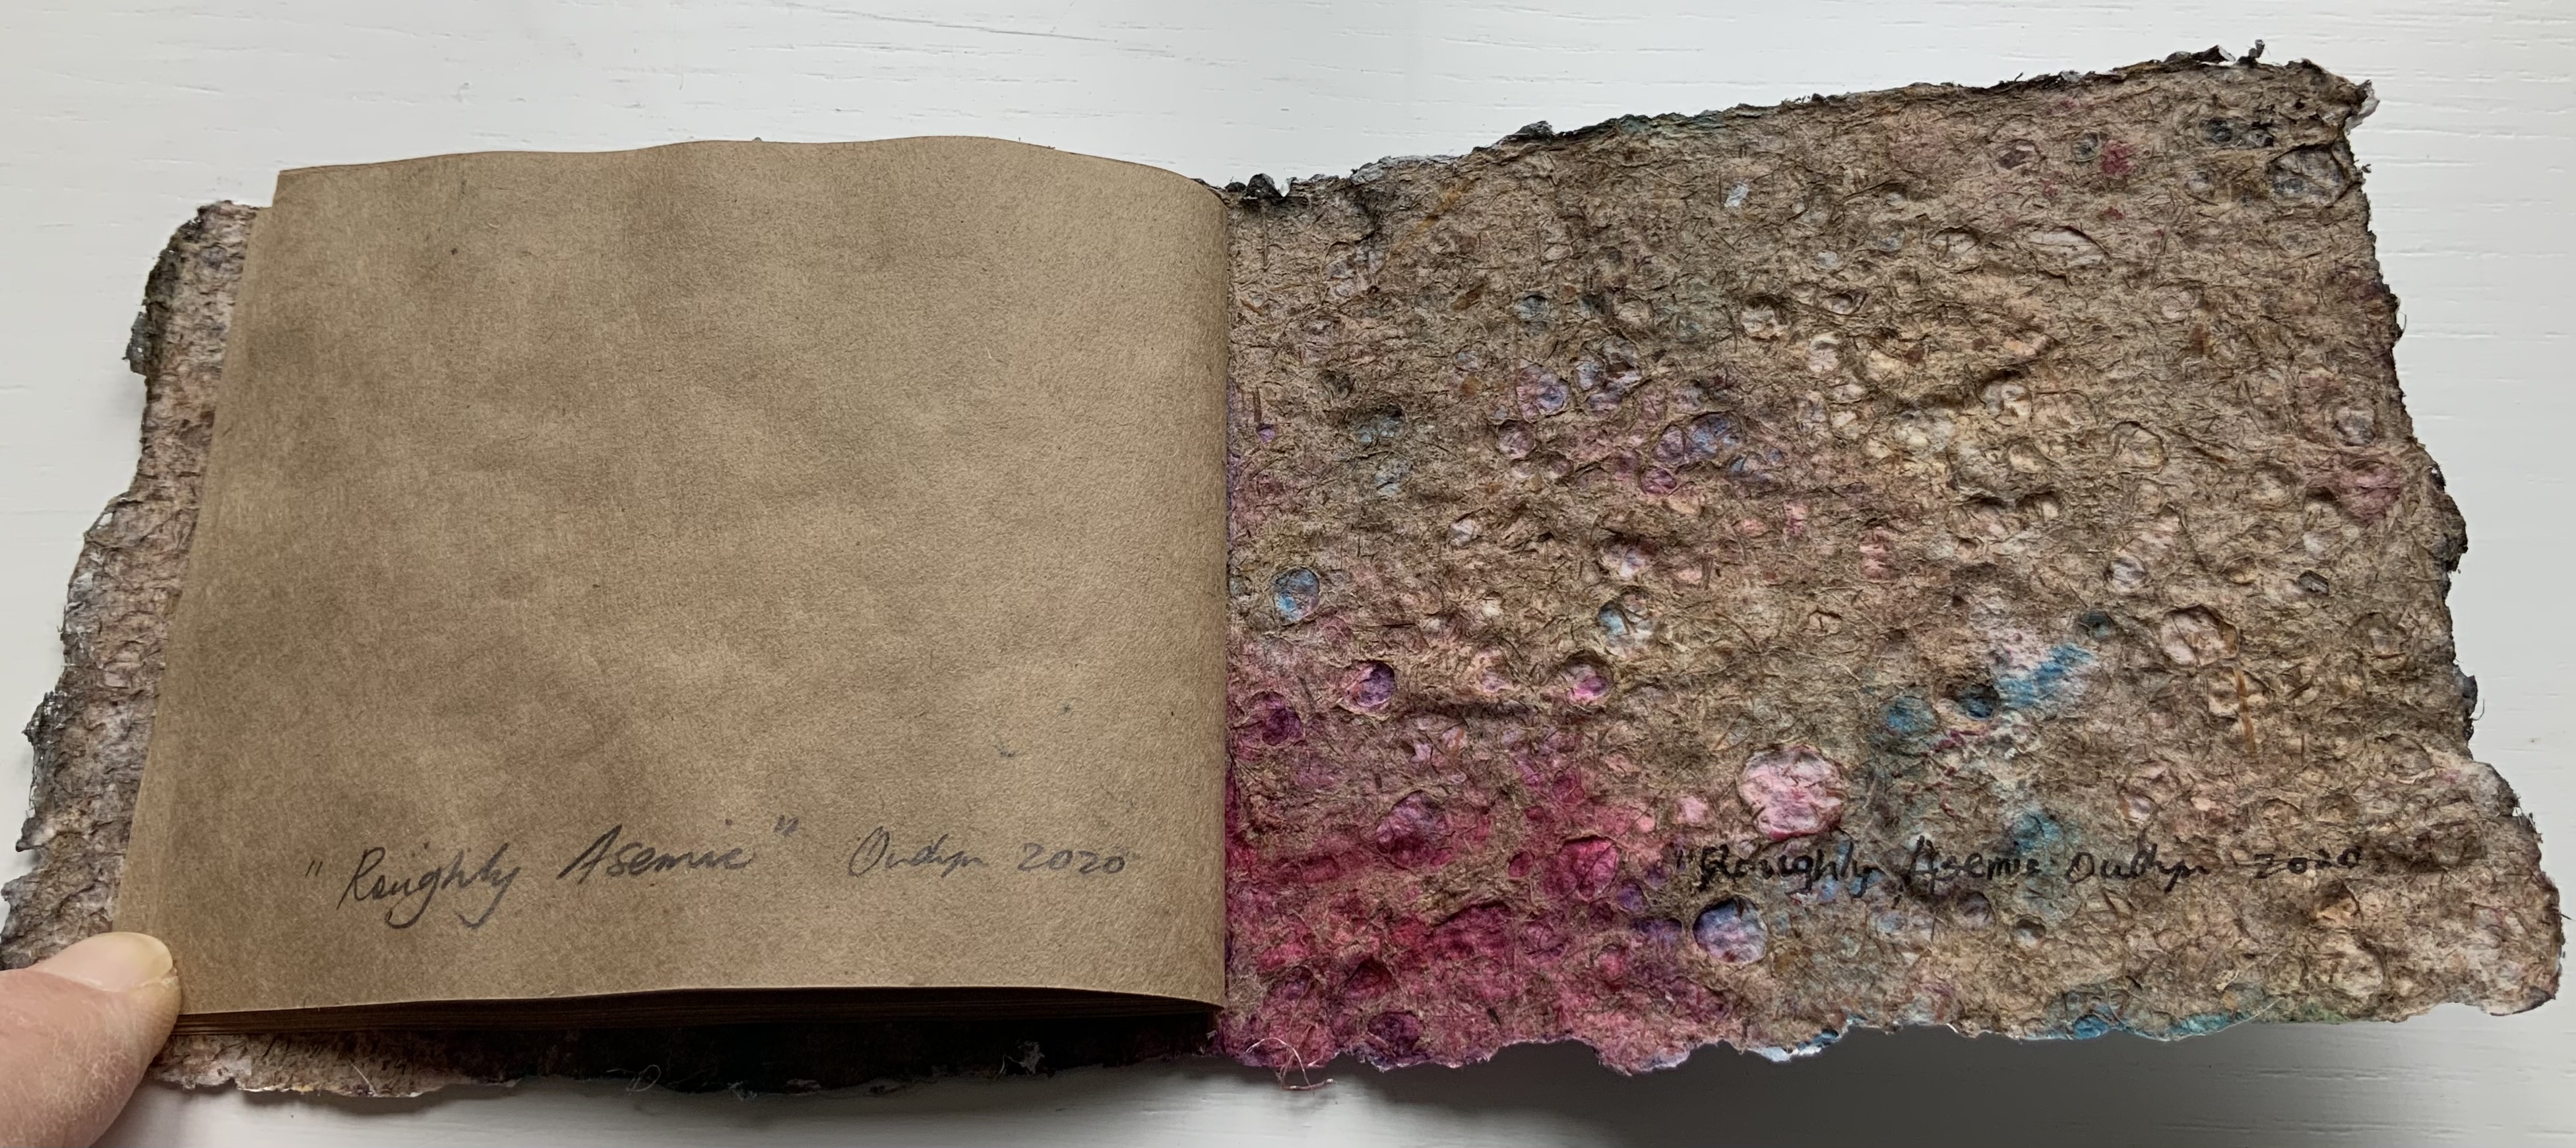 "Roughly Asemic" Oudyn 2020
"Roughly Asemic Oudyn 2020